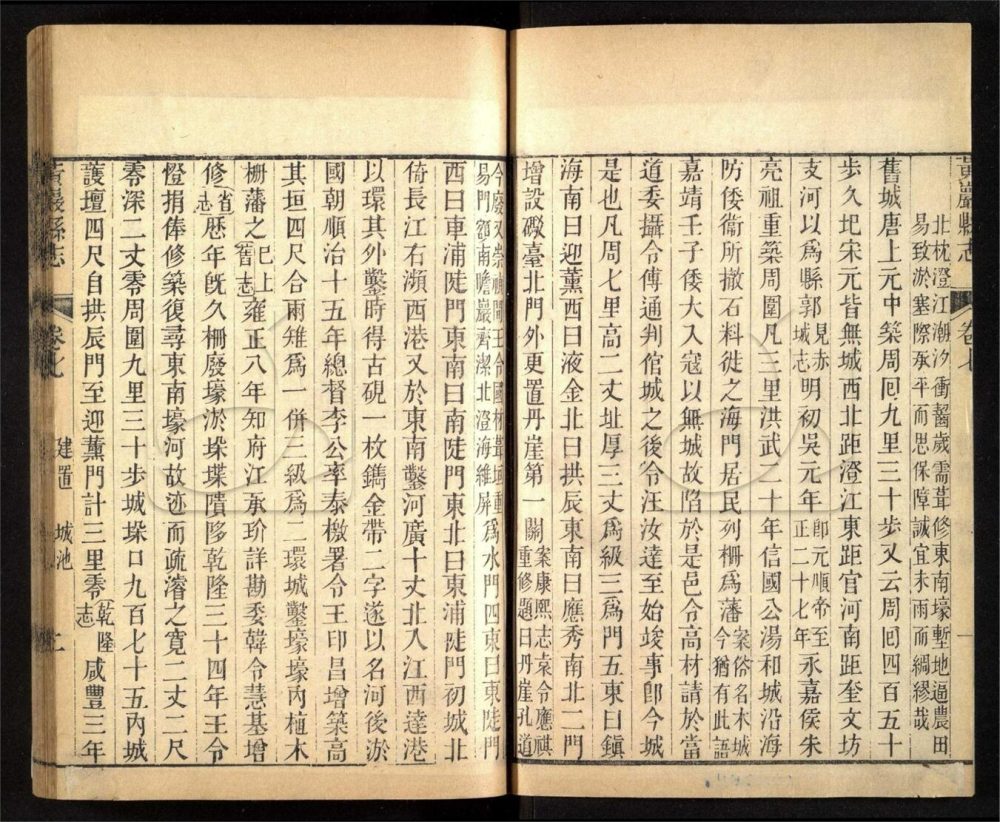 黃巖縣志 卷七
北枕澄江潮汐衝齧歲需葺修東南壕塹地逼農田
易致淤塞際承平而思保障誠宜未雨而綢繆哉
舊城唐上元中築周囘九里三十步又云周囘四百五十
步久圯宋元皆無城西北距澄江東距官河南距奎文坊
支河以爲縣郭見赤城志明初吳元年卽元順帝至正二十七年永嘉侯朱
亮祖重築周圍凡三里洪武二十年信國公湯和城沿海
防倭衞所撤石料徙之海門居民列柵爲藩案俗名木城今猶有此語
嘉靖壬子倭大入寇以無城故陷於是邑令高材請於當
道委攝令傅通判倌城之後令汪汝達至始竣事卽今城
是也凡周七里高二丈址厚三丈爲級三爲門五東曰鎭
海南曰迎薰西曰液金北曰拱辰東南曰應秀南北二門
增設礮臺北門外更置丹崖第一關案康熙志袁令應祺重修題曰丹崖孔道
今廢又崇禎間王令國林葺垣重易門額南瞻巖齊潔北澄海維屏爲水門四東曰東陡門
西曰車浦陡門東南曰南陡門東北曰東浦陡門初城北
倚長江右瀕西港又於東南鑿河廣十丈北入江西達港
以環其外鑿時得古硯一枚鐫金帶二字遂以名河後淤
國朝順治十五年總督李公率泰檄署令王印昌增築高
其垣四尺合兩雉爲一併三級爲二環城鑿壕壕內植木
柵藩之已上舊志雍正八年知府江承玠詳勘委韓令慧基增
修省志歷年旣久柵廢壕淤垛堞隤陊乾隆三十四年王令
憕捐俸修築復尋東南壕河故迹而疏濬之寬二丈二尺
零深二丈零周圍九里三十步城垛口九百七十五內城
護壇四尺自拱辰門至迎薰門計三里零乾隆志咸豐三年
黃巖縣志 卷七 建置 城池 二